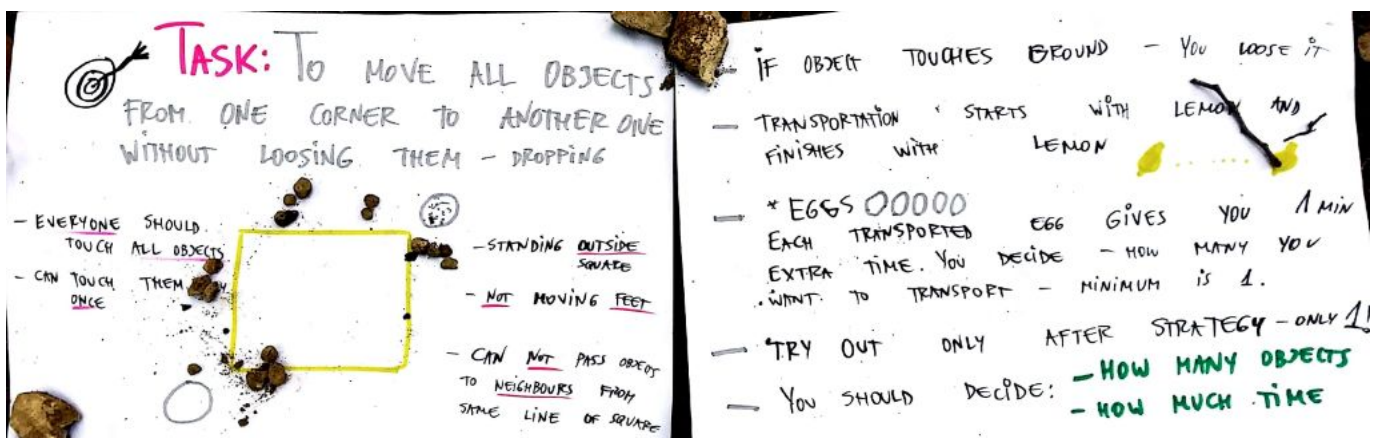 TASK: TO MOVE ALL OBJECTS
FROM ONE CORNER TO ANOTHER ONE
WITHOUT LOOSING THEM - DROPPING
- EVERYONE SHOULD
TOUCH ALL OBJECTS
- CAN TOUCH THEM
ONCE
- STANDING OUTSIDE
SQUARE
- NOT MOVING FEET
- CAN NOT PASS OBJECT
TO NEIGHBOURS FROM
SAME LINE OF SQUARE
- IF OBJECT TOUCHES GROUND - YOU LOOSE IT
- TRANSPORTATION STARTS WITH LEMON AND
FINISHES WITH LEMON
- * EGGS
EACH TRANSPORTED EGG GIVES YOU 1 MIN
EXTRA TIME. YOU DECIDE - HOW MANY YOU
WANT TO TRANSPORT - MINIMUM IS 1.
- TRY OUT ONLY AFTER STRATEGY - ONLY 1!
- YOU SHOULD DECIDE: - HOW MANY OBJECTS
- HOW MUCH TIME